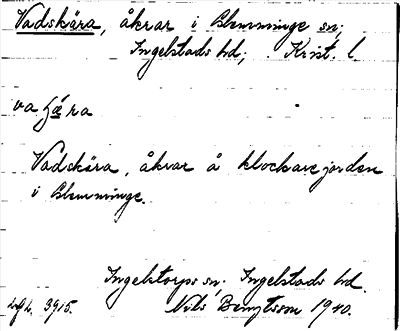 Vadskära, åkrar i Glemminge sn;
Ingelstads hd; Krist. l.
va ʃǽ ra
Vadskära, åkrar å klockarejorden
i Glemminge.
Ingelstorps sn; Ingelstads hd.
3915. Nils Bengtsson 1940.